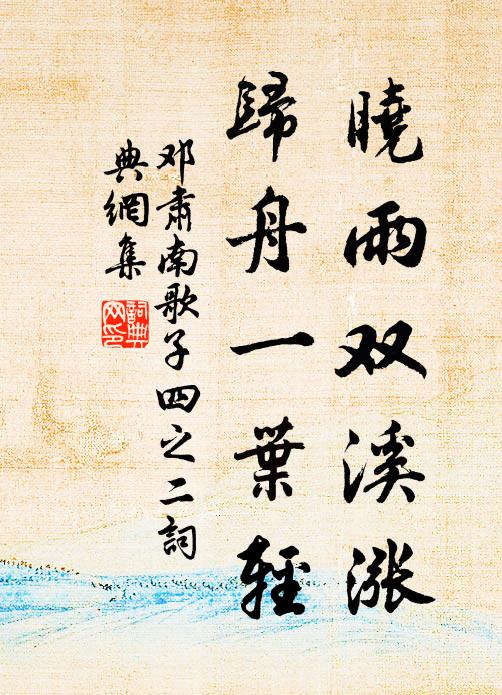 曉雨双溪漲
歸舟一葉輕
邓肅南歌子四之二詞
典網集
詞典
网印